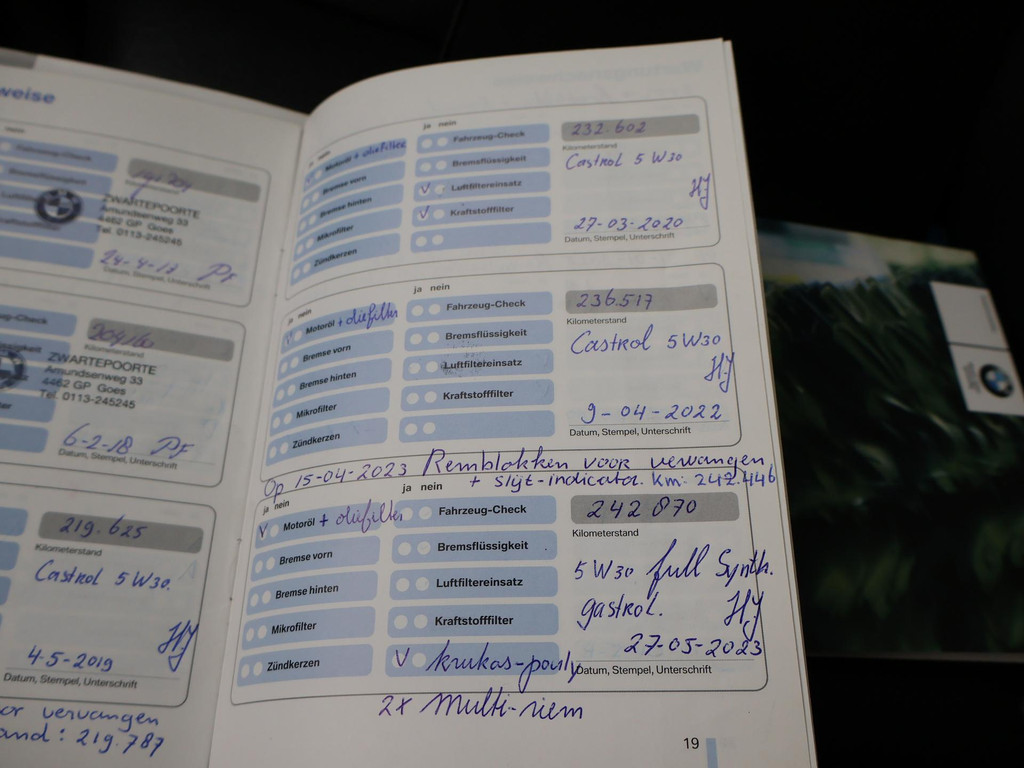 weise
nein
Fahrzeug-Check
ZWARTEPOORTE
Amundsenweg 33
4462 GP Goes
Tel. 0113-245245
24-4-17 Pf
Datum, Stempel, Unterschrift
g-Check
Kilometerstand
ZWARTEPOORTE
Amundsenweg 33
4462 GP Goes
Tel. 0113-245245
6-2-18 Pf
Datum, Stempel, Unterschrift
219.625
Kilometerstand
Castrol 5W30.
HJ
4-5-2019
Datum, Stempel, Unterschrift
or vervangen
and: 219.787
ja nein
Motoröl + oliefilter
Bremse vorn
Bremse hinten
Mikrofilter
Zündkerzen
Fahrzeug-Check
Bremsflüssigkeit
V Luftfiltereinsatz
V Kraftstofffilter
232.602
Kilometerstand
Castrol 5W30
HJ
27-03-2020
Datum, Stempel, Unterschrift
ja nein
nein
V Motoröl + oliefilter
Bremse vorn
Bremse hinten
Mikrofilter
Zündkerzen
Fahrzeug-Check
Bremsflüssigkeit
Luftfiltereinsatz
Kraftstofffilter
236.517
Kilometerstand
Castrol 5W30
HJ
9-04-2022
Datum, Stempel, Unterschrift
Op 15-04-2023 Remblokken voor vervangen
+ slijt-indicator. Km: 242.446
ja nein
nein
V Motoröl + oliefilter
Bremse vorn
Bremse hinten
Mikrofilter
Zündkerzen
Fahrzeug-Check
Bremsflüssigkeit
Luftfiltereinsatz
Kraftstofffilter
V krukas-pouly
242 870
Kilometerstand
5W30 full Synth.
gastrol. HJ
27-05-2023
Datum, Stempel, Unterschrift
2x Multi-riem
19